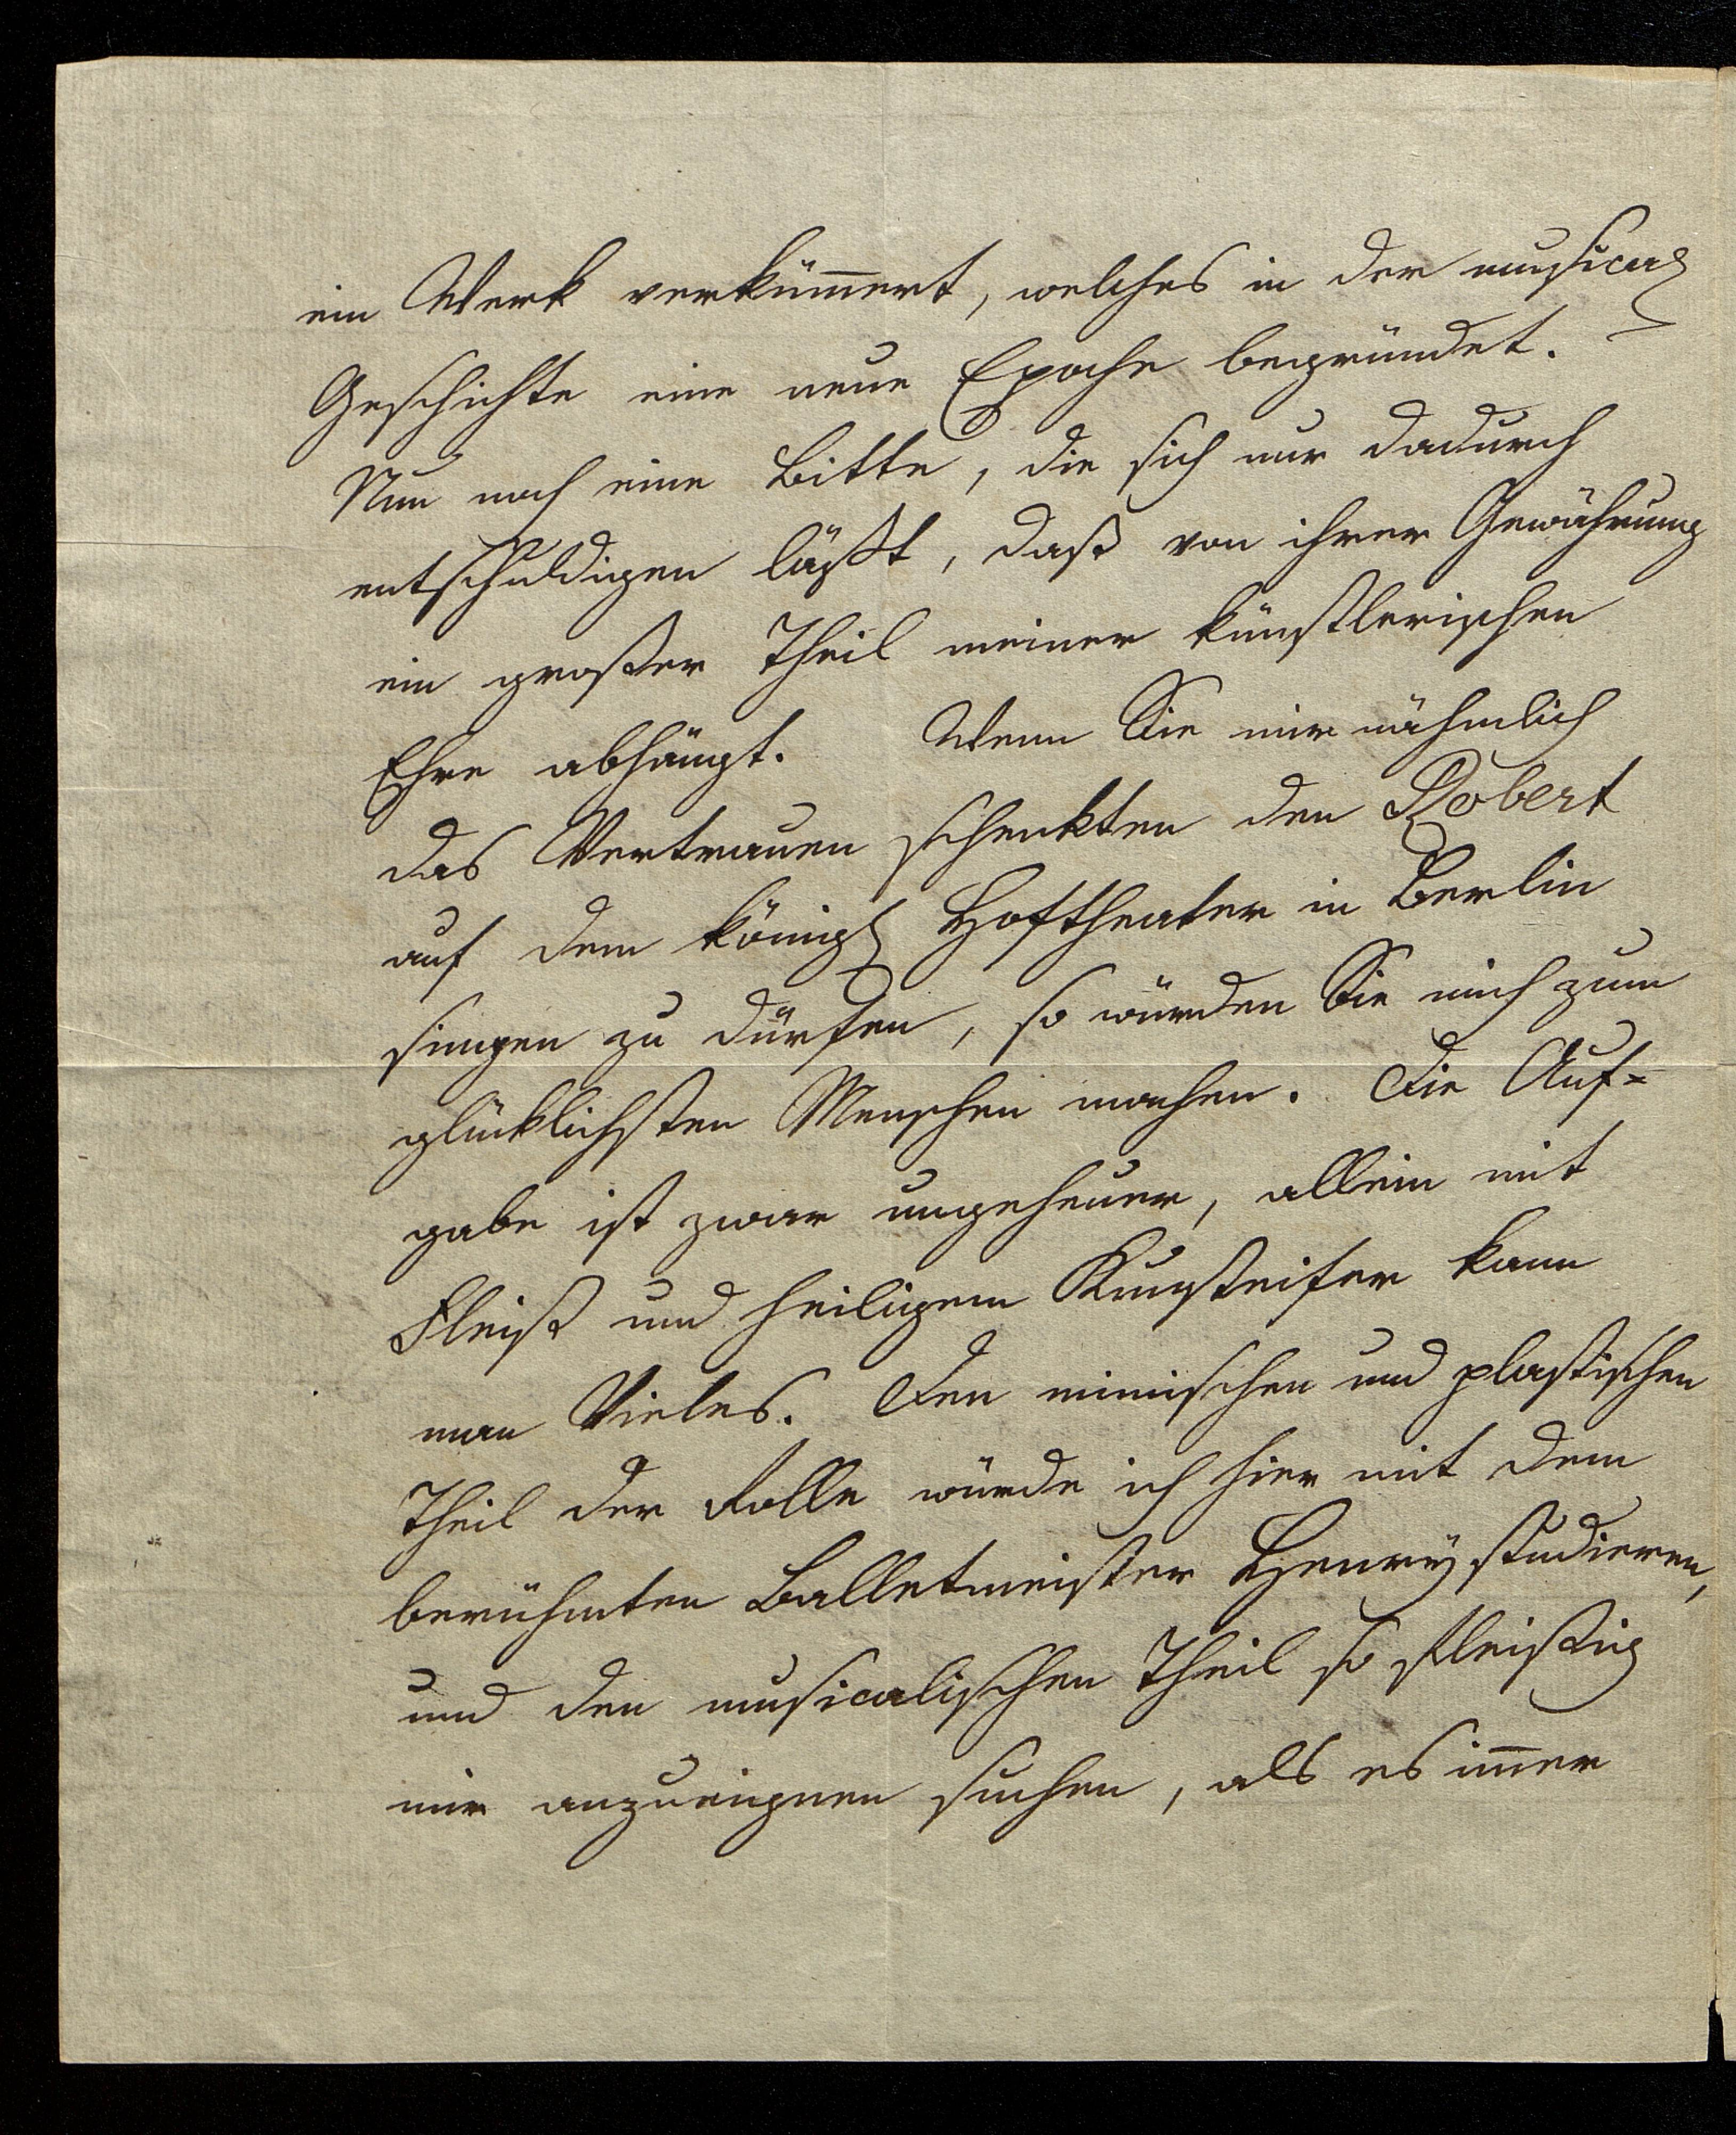 ein Werk verküm̅ert, welches in der musical
Geschichte eine neue Epoche begründet.
Nun noch eine Bitte, die sich nur dadurch
entschuldigen läßt, daß von ihrer Gewährung
ein großer Theil meiner künstlerischen
Ehre abhängt. Wenn Sie mir nähmlich
das Vertrauen schenkten den Robert
auf dem königl Hoftheater in Berlin
singen zu dürfen, so würden Sie mich zum
glücklichsten Menschen machen. Die Auf=
gabe ist zwar ungeheuer, allein mit
Fleiß und heiligem Kunsteifer kann
man Vieles. Den mimischen und plastischen
Theil der Rolle würde ich hier mit dem
berühmten Balletmeister Henry studieren,
und den musicalischen Theil so fleißig
mir anzueignen suchen, als es im̅er